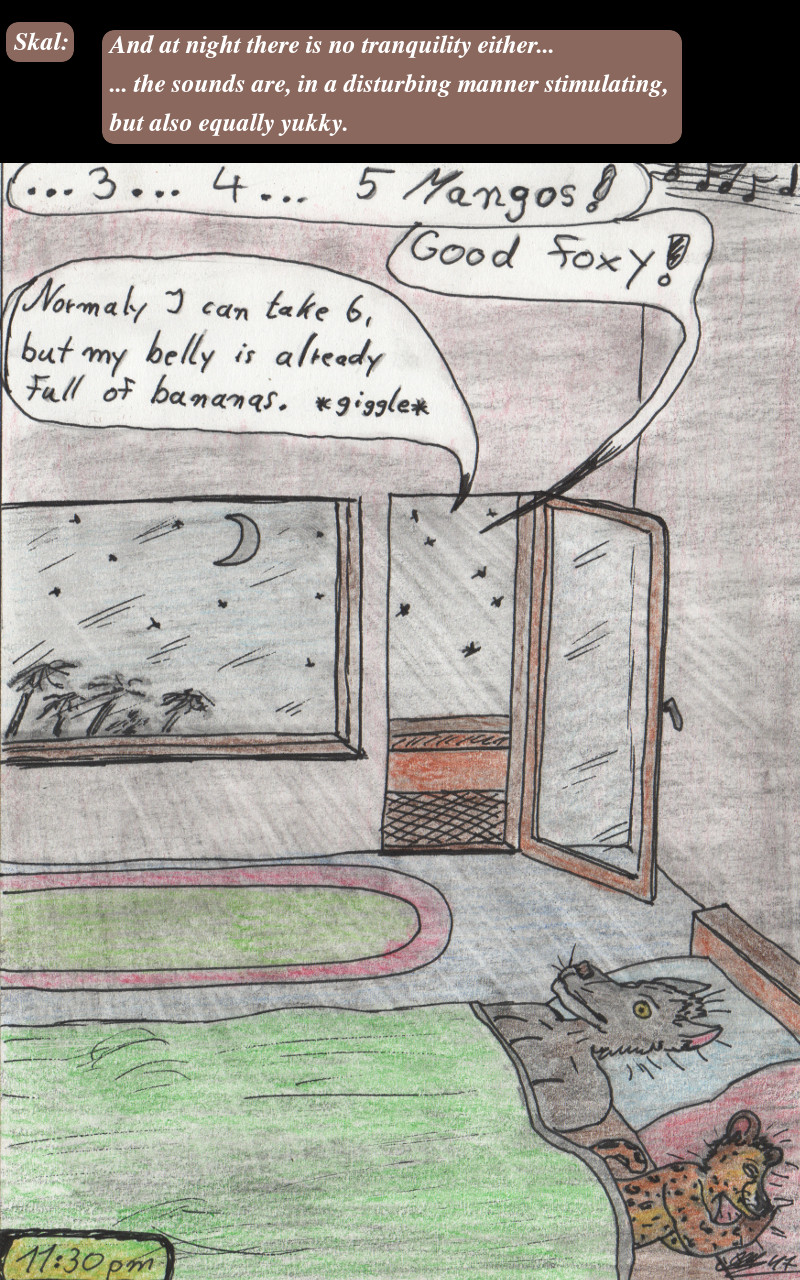 Skal:
And at night there is no tranquility either...
... the sounds are, in a disturbing manner stimulating,
but also equally yukky.
...3... 4... 5 Mangos!
Good foxy!
Normaly I can take 6,
but my belly is already
full of bananas. *giggle*
11:30 pm